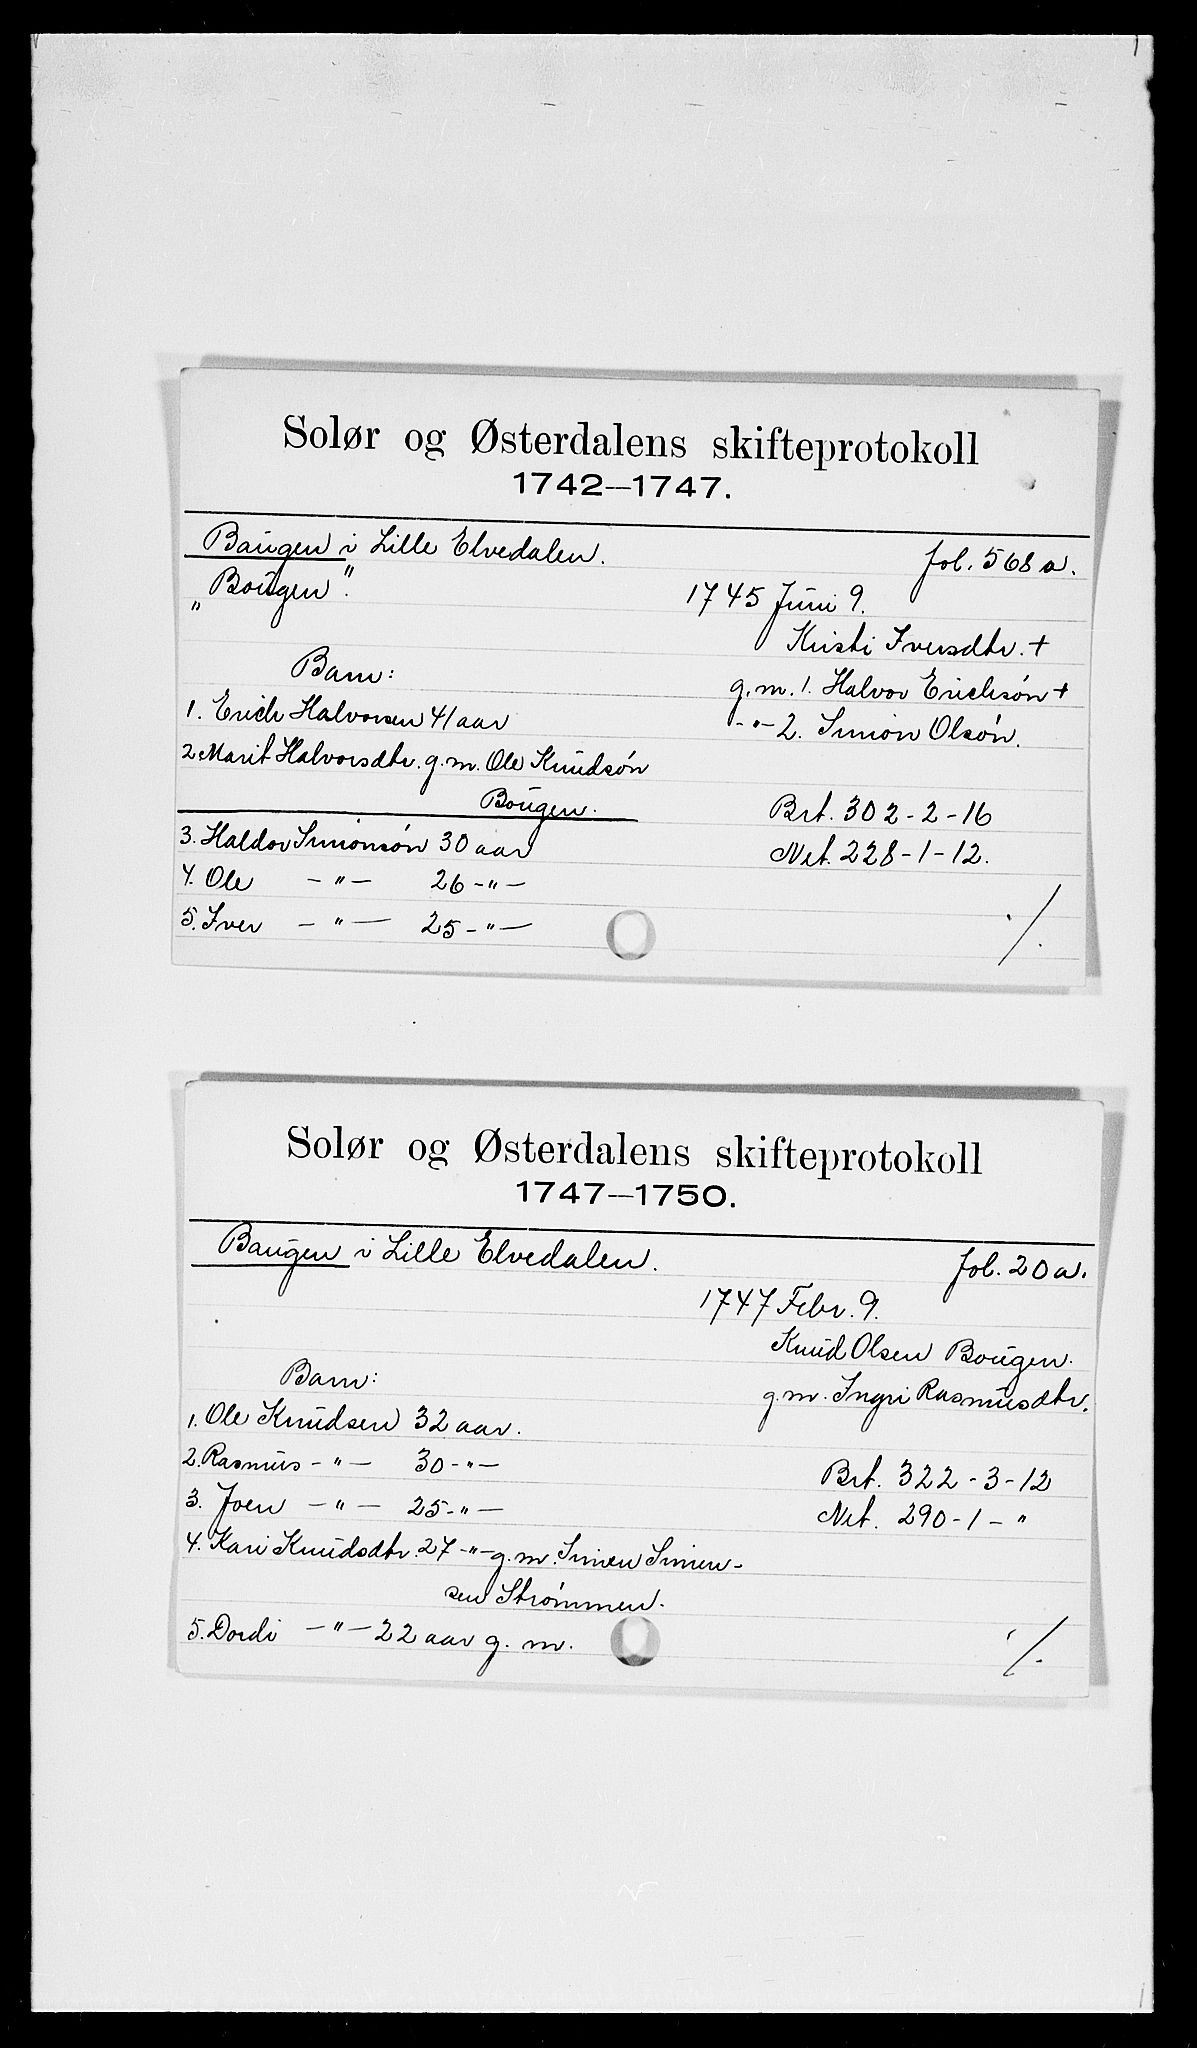 Solør og Østerdalens skifteprotokoll
1742—1747.
Baugen i Lille Elvedalen. fol. 568 a.
„Bougen". 1745 Juni 9.
Kristi Iversdtr. +
Barn: g.m. 1. Halvor Erichsøn +
1. Erich Halvorsen 41 aar -"- 2. Simon Olsøn.
2. Marit Halvorsdtr. g.m. Ole Knudsøn
Bougen. Brt. 302-2-16
3. Haldor Simonsøn 30 aar Net. 228-1-12.
4. Ole -"- 26 -"-
5. Iver -"- 25 -"- ./.
Solør og Østerdalens skifteprotokoll
1747—1750.
Baugen i Lille Elvedalen. fol. 20 a.
1747 Febr. 9.
Knud Olsen Bougen.
Barn: g.m. Ingri Rasmusdtr.
1. Ole Knudsen 32 aar.
2. Rasmus -"- 30 -"- Brt. 322-3-12
3. Joen -"- 25 -"- Net. 290-1-"
4. Kari Knudsdtr. 27 -"- g.m. Simen Simen-
sen Strømmen.
5. Dordi -"- 22 aar g. m. ./.